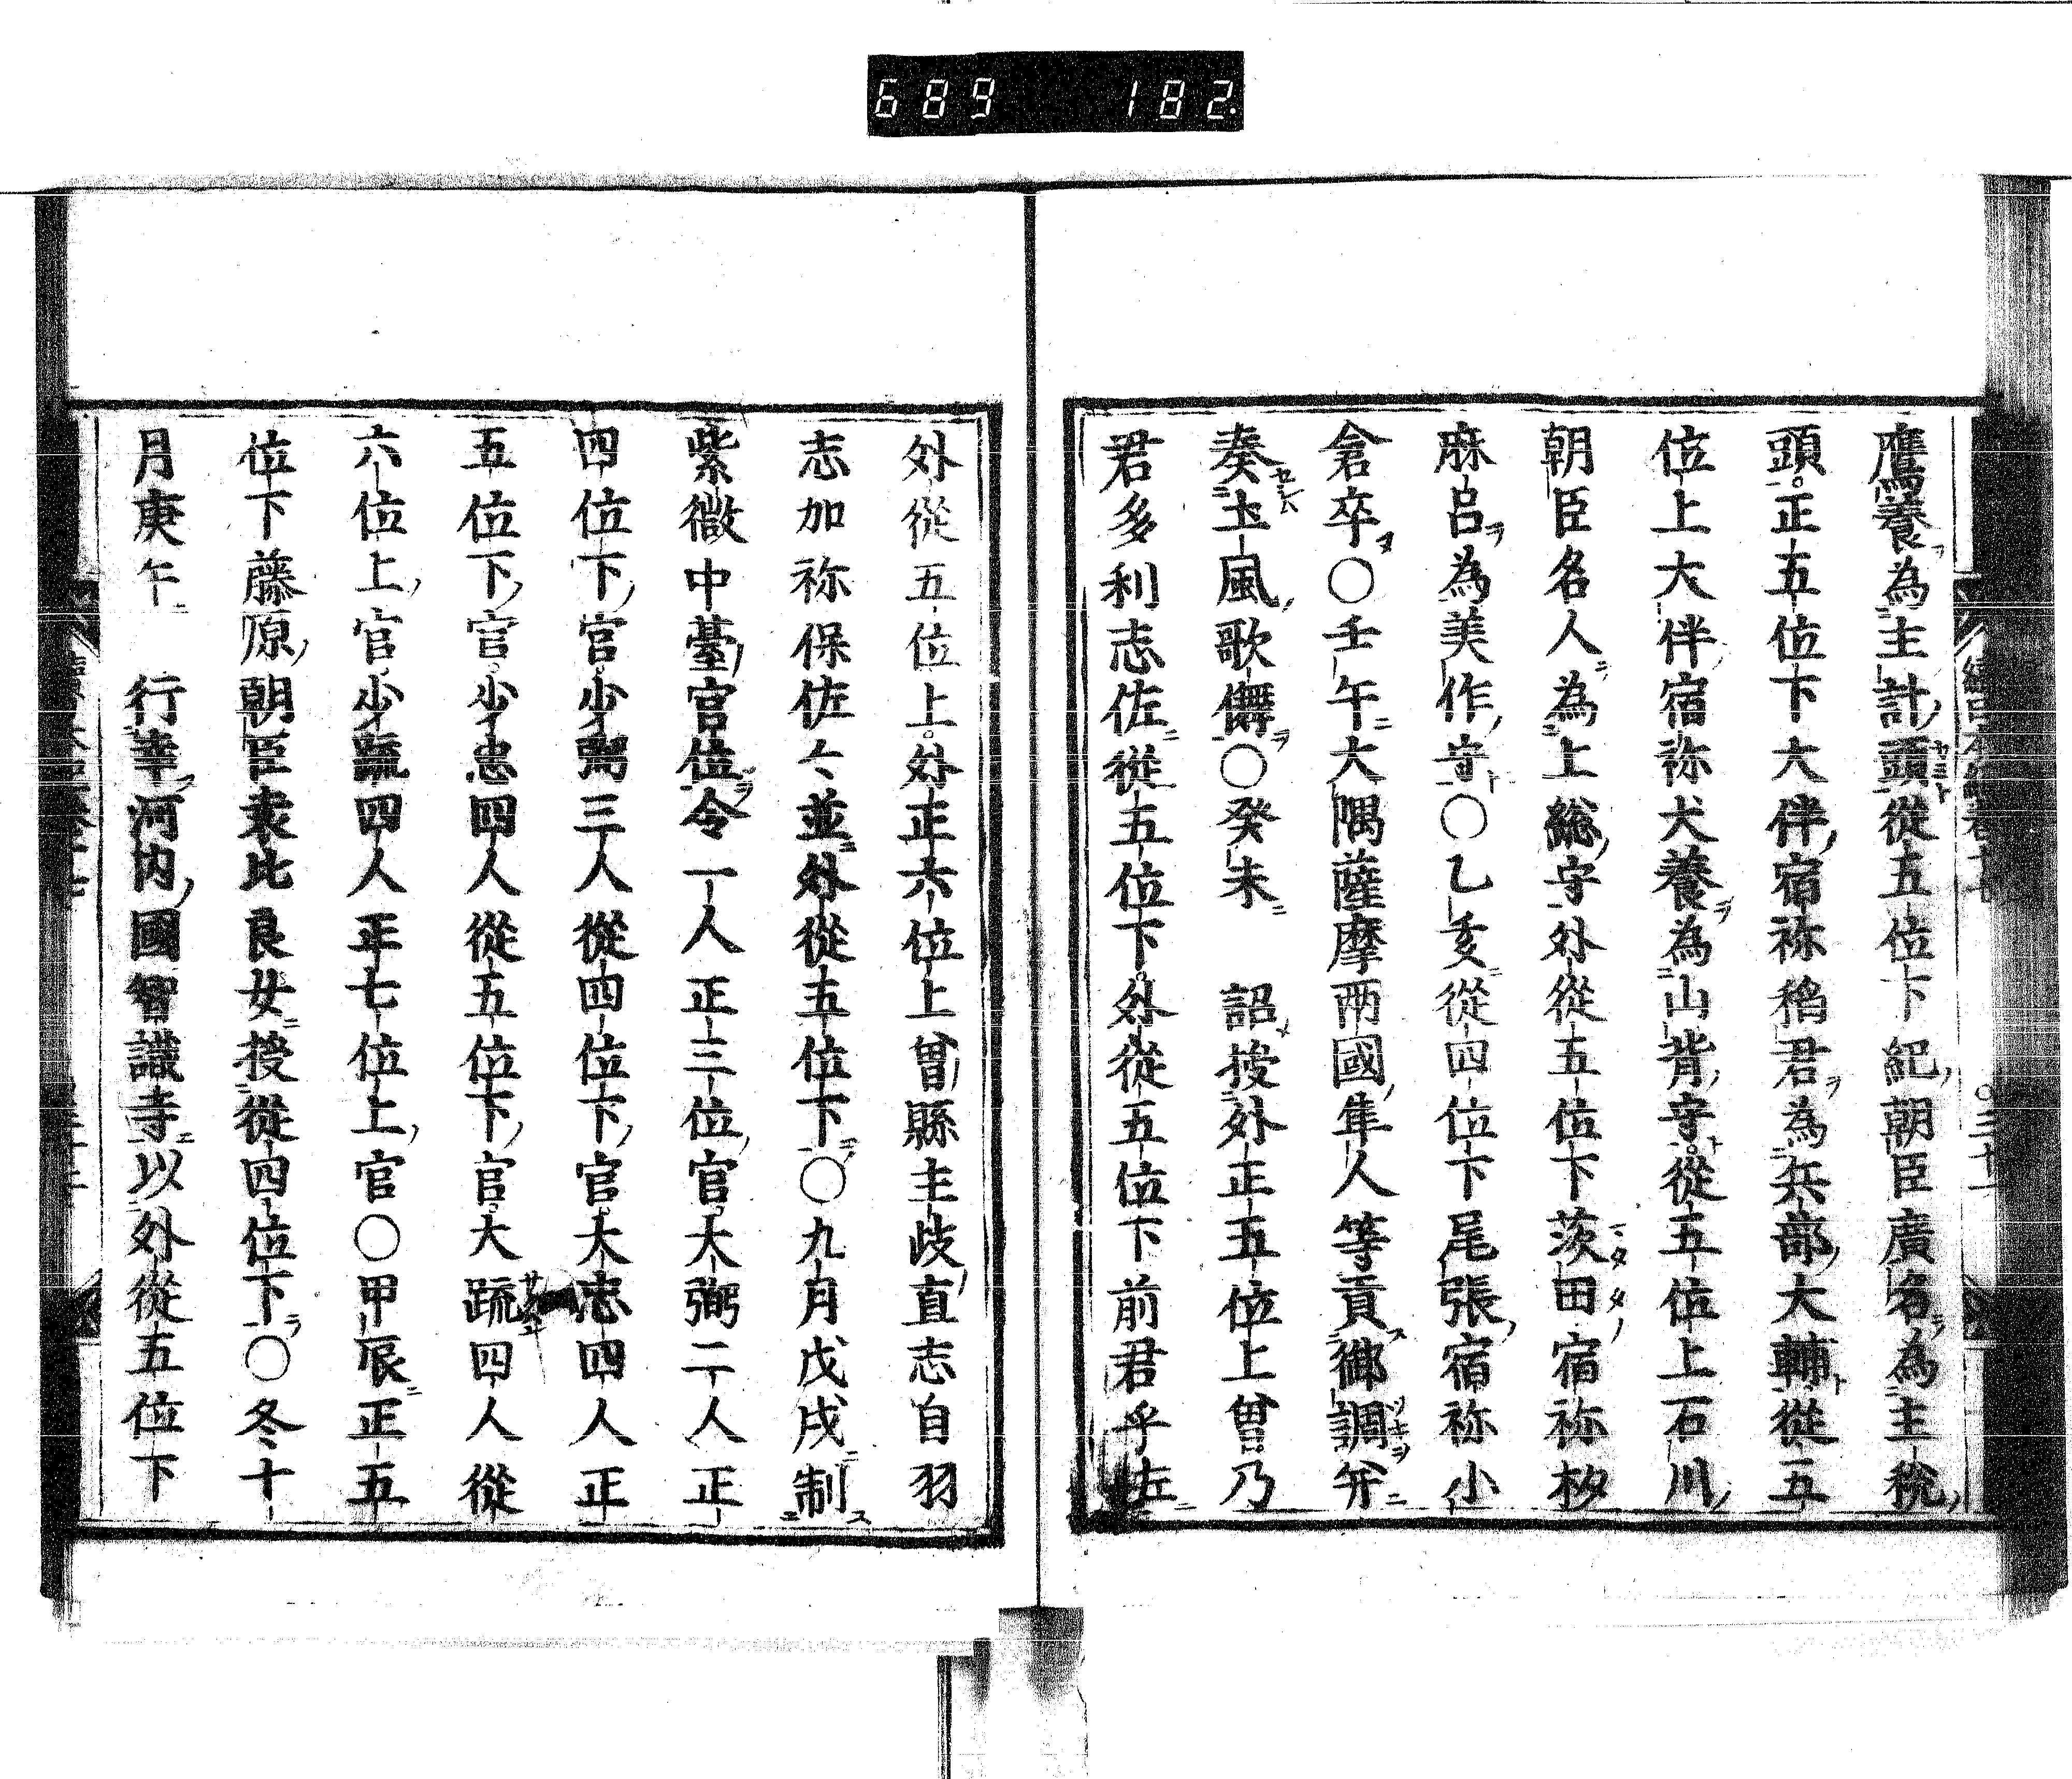 689 182
鷹養為主計頭從五位下紀朝臣廣名為主税
頭正五位下大伴宿祢稻君為兵部大輔從五
位上大伴宿祢犬養為山背守從五位上石川
朝臣名人為上総守外從五位下茨田宿祢枚
麻呂為美作守〇乙亥從四位下尾張宿祢小
倉卒〇壬午大隅薩摩两國隼人等貢御調并
奏土風歌儛〇癸未 詔授外正五位上曽乃
君多利志佐從五位下外從五位下前君乎佐
外從五位上外正六位上曽縣主岐直志自羽
志加祢保佐々並外從五位下〇九月戊戌制
紫微中臺官位令一人正三位官大弼二人正
四位下官少弼三人從四位下官大忠四人正
五位下官少忠四人從五位下官大疏四人從
六位上官少疏四人正七位上官〇甲辰正五
位下藤原朝臣袁比良女授從四位下〇冬十
月庚午 行幸河内國智識寺以外從五位下